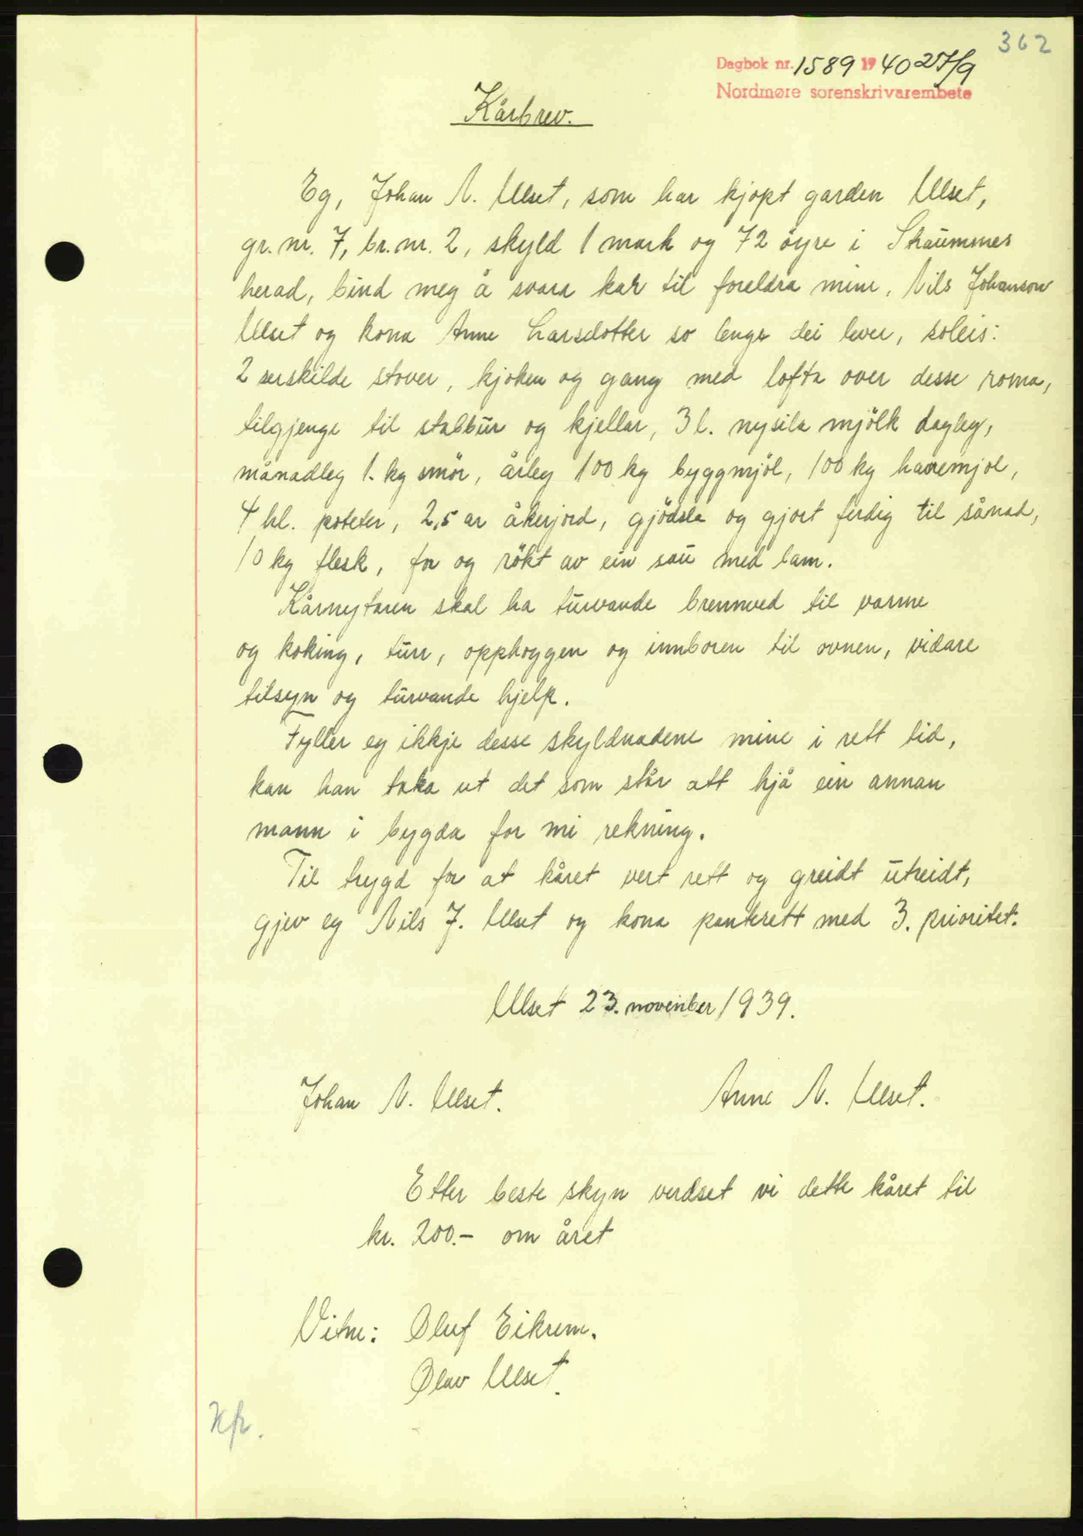 362
Dagbok nr. 1589 1940 27/9
Nordmøre sorenskrivarembete
Kårbrev.
Eg, Johan N. Ulset, som har kjøpt garden Ulset,
gr. nr. 7, br. nr. 2, skyld 1 mark og 72 öyre i Straumsnes
herad, bind meg å svara kår til foreldra mine, Nils Johanson
Ulset og kona Anne Larsdotter so lenge dei lever, soleis:
2 serskilde stover, kjøken og gang med lofta over desse roma,
tilgjenge til stabbur og kjellar, 3 l. nysila mjölk dagleg,
månadleg 1. kg smör, årleg 100 kg byggmjöl, 100 kg havremjöl,
4 hl. poteter, 2,5 ar åkerjord, gjödsla og gjort ferdig til sånad,
10 kg flesk, for og rökt av ein sau med lam.
Kårnytaren skal ha turvande brennved til varme
og koking, turr, opphoggen og innboren til ovnen, vidare
tilsyn og turvande hjelp.
Fyller eg ikkje desse skyldnadene mine i rett tid,
kan han taka ut det som står att hjå ein annan
mann i bygda for mi rekning.
Til trygd for at kåret vert rett og greidt utreidt,
gjev eg Nils J. Ulset og kona panterett med 3. prioritet.
Ulset 23. november 1939.
Johan N. Ulset. Anne N. Ulset.
Etter beste skyn verdset vi dette kåret til
kr. 200.- om året
Vitne: Oluf Eikrem.
Olav Ulset.